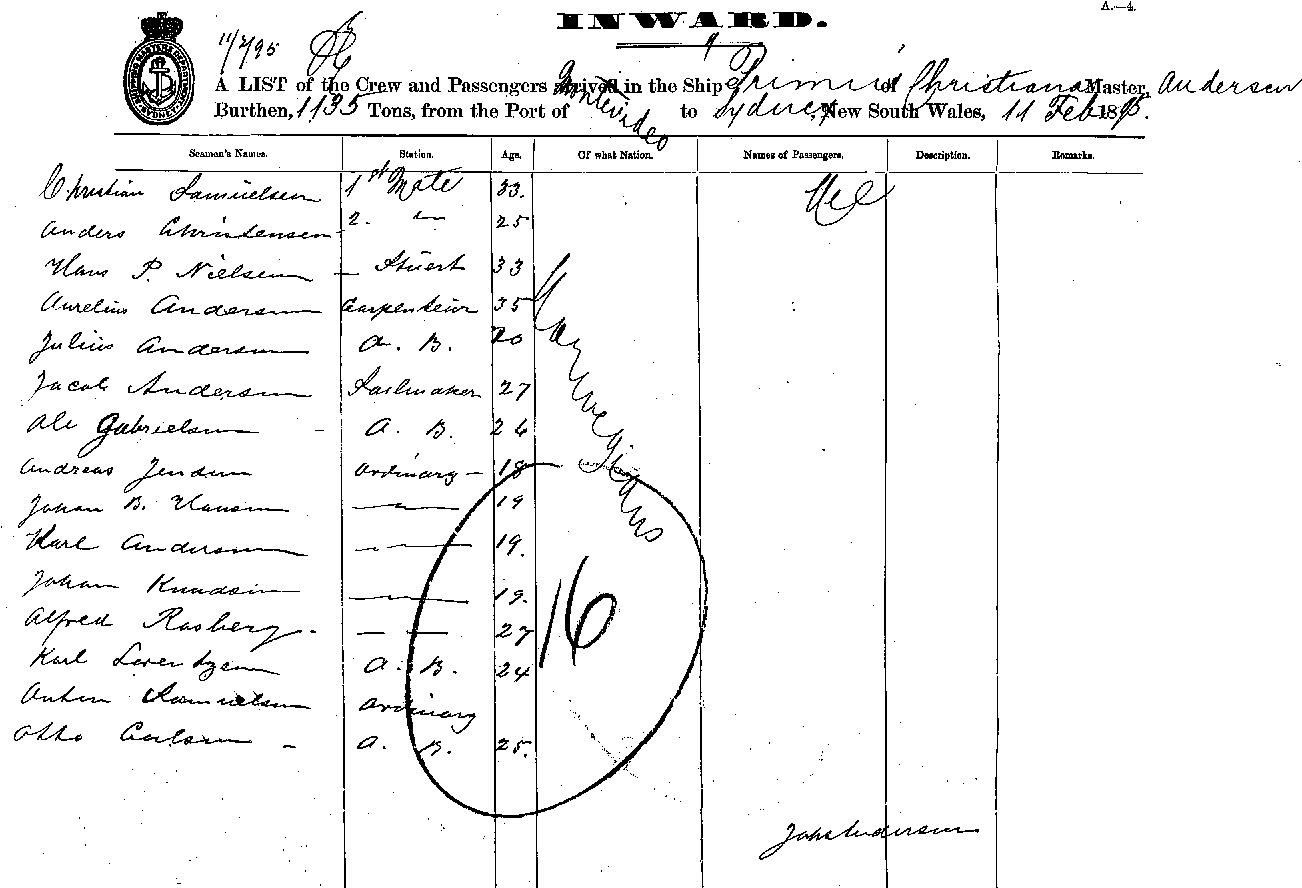 INWARD. A.—4.
11/2/95
A LIST of the Crew and Passengers arrived in the Ship Primus of Christiana Master, Andersen
Burthen, 1135 Tons, from the Port of Montevideo to Sydney, New South Wales, 11 Feb 1895.
Seamen's Names. Station. Age. Of what Nation. Names of Passengers. Description. Remarks.
Christian Samuelsen 1st Mate 33. Nil
Anders Christensen 2. " 25
Hans P. Nielsen — Stuert 33
Aurelius Andersen Carpenteur 35
Julius Andersen A. B. 20
Jacob Andersen Sailmaker 27
Ole Gabrielsen - A. B. 24
Andreas Jensen ordinary — 18
Johan B. Hansen — 19
Karl Andersen — 19.
Johan Knudsen — 19.
Alfred Rosberg. — — 27
Karl Lorentzen A. B. 24
Anton Samuelsen ordinary
Otto Carlsen - A. B. 25.
Norwegians
16
Johs Andersen